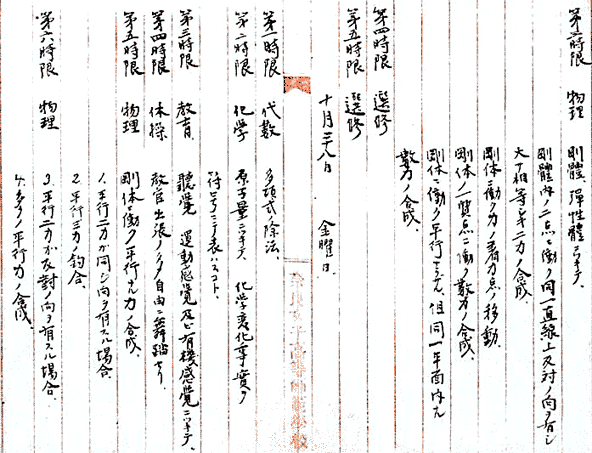 第三時限 物理 剛體、彈性體ニツキテ、
剛體内ノ二点ニ働ク同一直線上反対ノ向ヲ有シ
大サ相等シキ二力ノ合成、
剛体ニ働ク力ノ着力点ノ移動、
剛体ノ一質点ニ働ク数力ノ合成、
剛体ニ働ク平行
但同一平面内ナル
数力ノ合成、
第四時限 選修
第五時限 選修
十月二十八日 金曜日
第一時限 代数 多項式ノ除法、
第二時限 化学 原子量ニツキテ、 化学変化事実ヲ
符号ニテ表ハスコト、
第三時限 教育 聽覚 運動感覚及ビ有機感覚ニツキテ、
第四時限 体操 教官出張ノタメ自由ニ舞踏セリ、
第五時限 物理 剛体ニ働ク平行ナル力ノ合成、
1. 平行二力ガ同ジ向ヲ有スル場合
2. 平行三力ノ釣合、
第六時限 物理 3. 平行二力ガ反対ノ向ヲ有スル場合、
4. 多クノ平行力ノ合成、
奈良女子高等師範學校